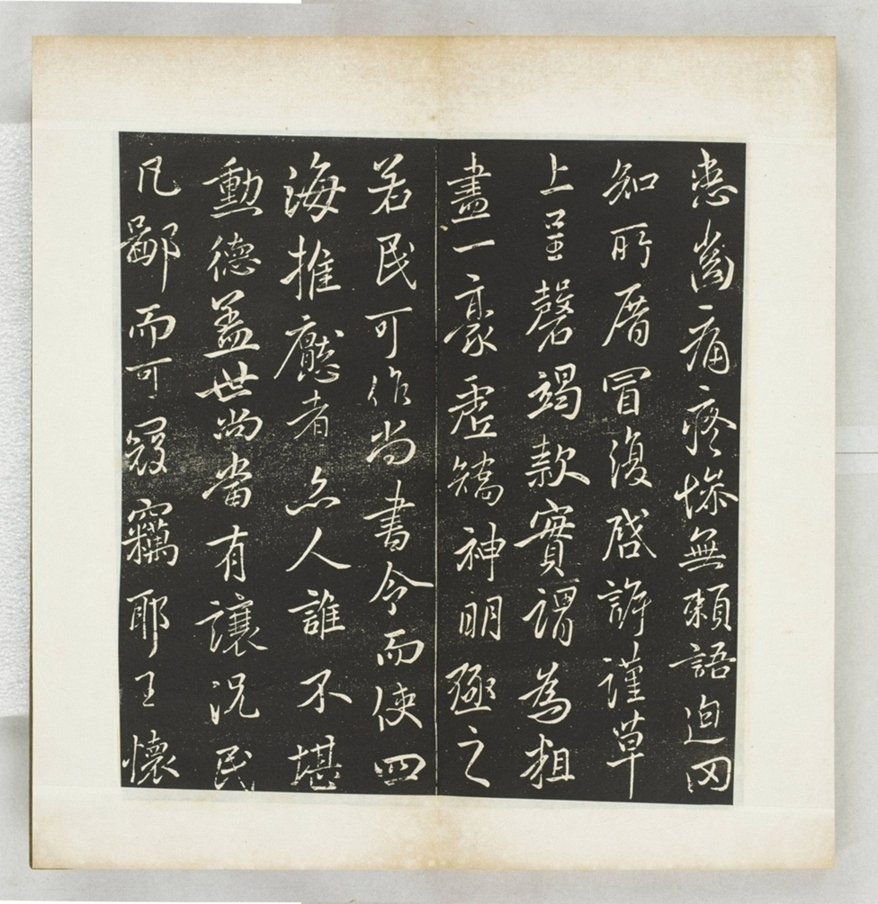 患齒痛疼惱無賴語迫罔
知所厝冒復啓訴謹草
上呈罄竭款實謂為粗
盡一豪虛矯神明殛之
若民可作尚書令而使四
海推懕者亦人誰不堪
勳德蓋世尚當有讓況民
凡鄙而可叨竊耶王懷